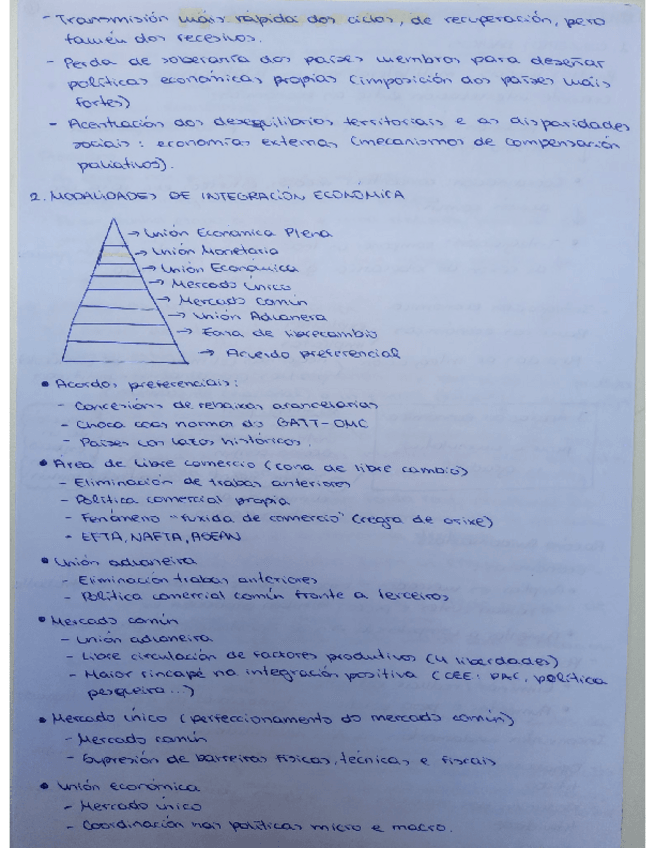 - Transmisión máis rápida dos ciclos, de recuperación, pero
tamén dos recesivos.
- Perda de soberanía dos países membros para deseñar
políticas económicas propias (imposición dos países máis
fortes)
- Acentuación dos desequilibrios territoriais e as disparidades
sociais: economías externas (mecanismos de compensación
paliativos).
2. MODALIDADES DE INTEGRACIÓN ECONÓMICA
→ Unión Económica Plena
→ Unión Monetaria
→ Unión Económica
→ Mercado Único
→ Mercado Común
→ Unión Aduanera
→ Zona de librecambio
→ Acuerdo preferencial
• Acordos preferenciais:
- Concesións de rebaixas arancelarias
- Choca coas normas do GATT-OMC
- Países con lazos históricos.
• Área de libre comercio (zona de libre cambio)
- Eliminación de trabas anteriores
- Política comercial propia
- Fenómeno "fuxida de comercio" (regra de orixe)
- EFTA, NAFTA, ASEAN
• Unión aduaneira
- Eliminación trabas anteriores
- Política comercial común fronte a terceiros
• Mercado común
- Unión aduaneira
- Libre circulación de factores produtivos (4 liberdades)
- Maior fincapé na integración positiva (CEE: PAC, política
pesqueira...)
• Mercado único (perfeccionamento do mercado común)
- Mercado común
- Supresión de barreiras físicas, técnicas e fiscais
• Unión económica
- Mercado único
- Coordinación nas políticas micro e macro.